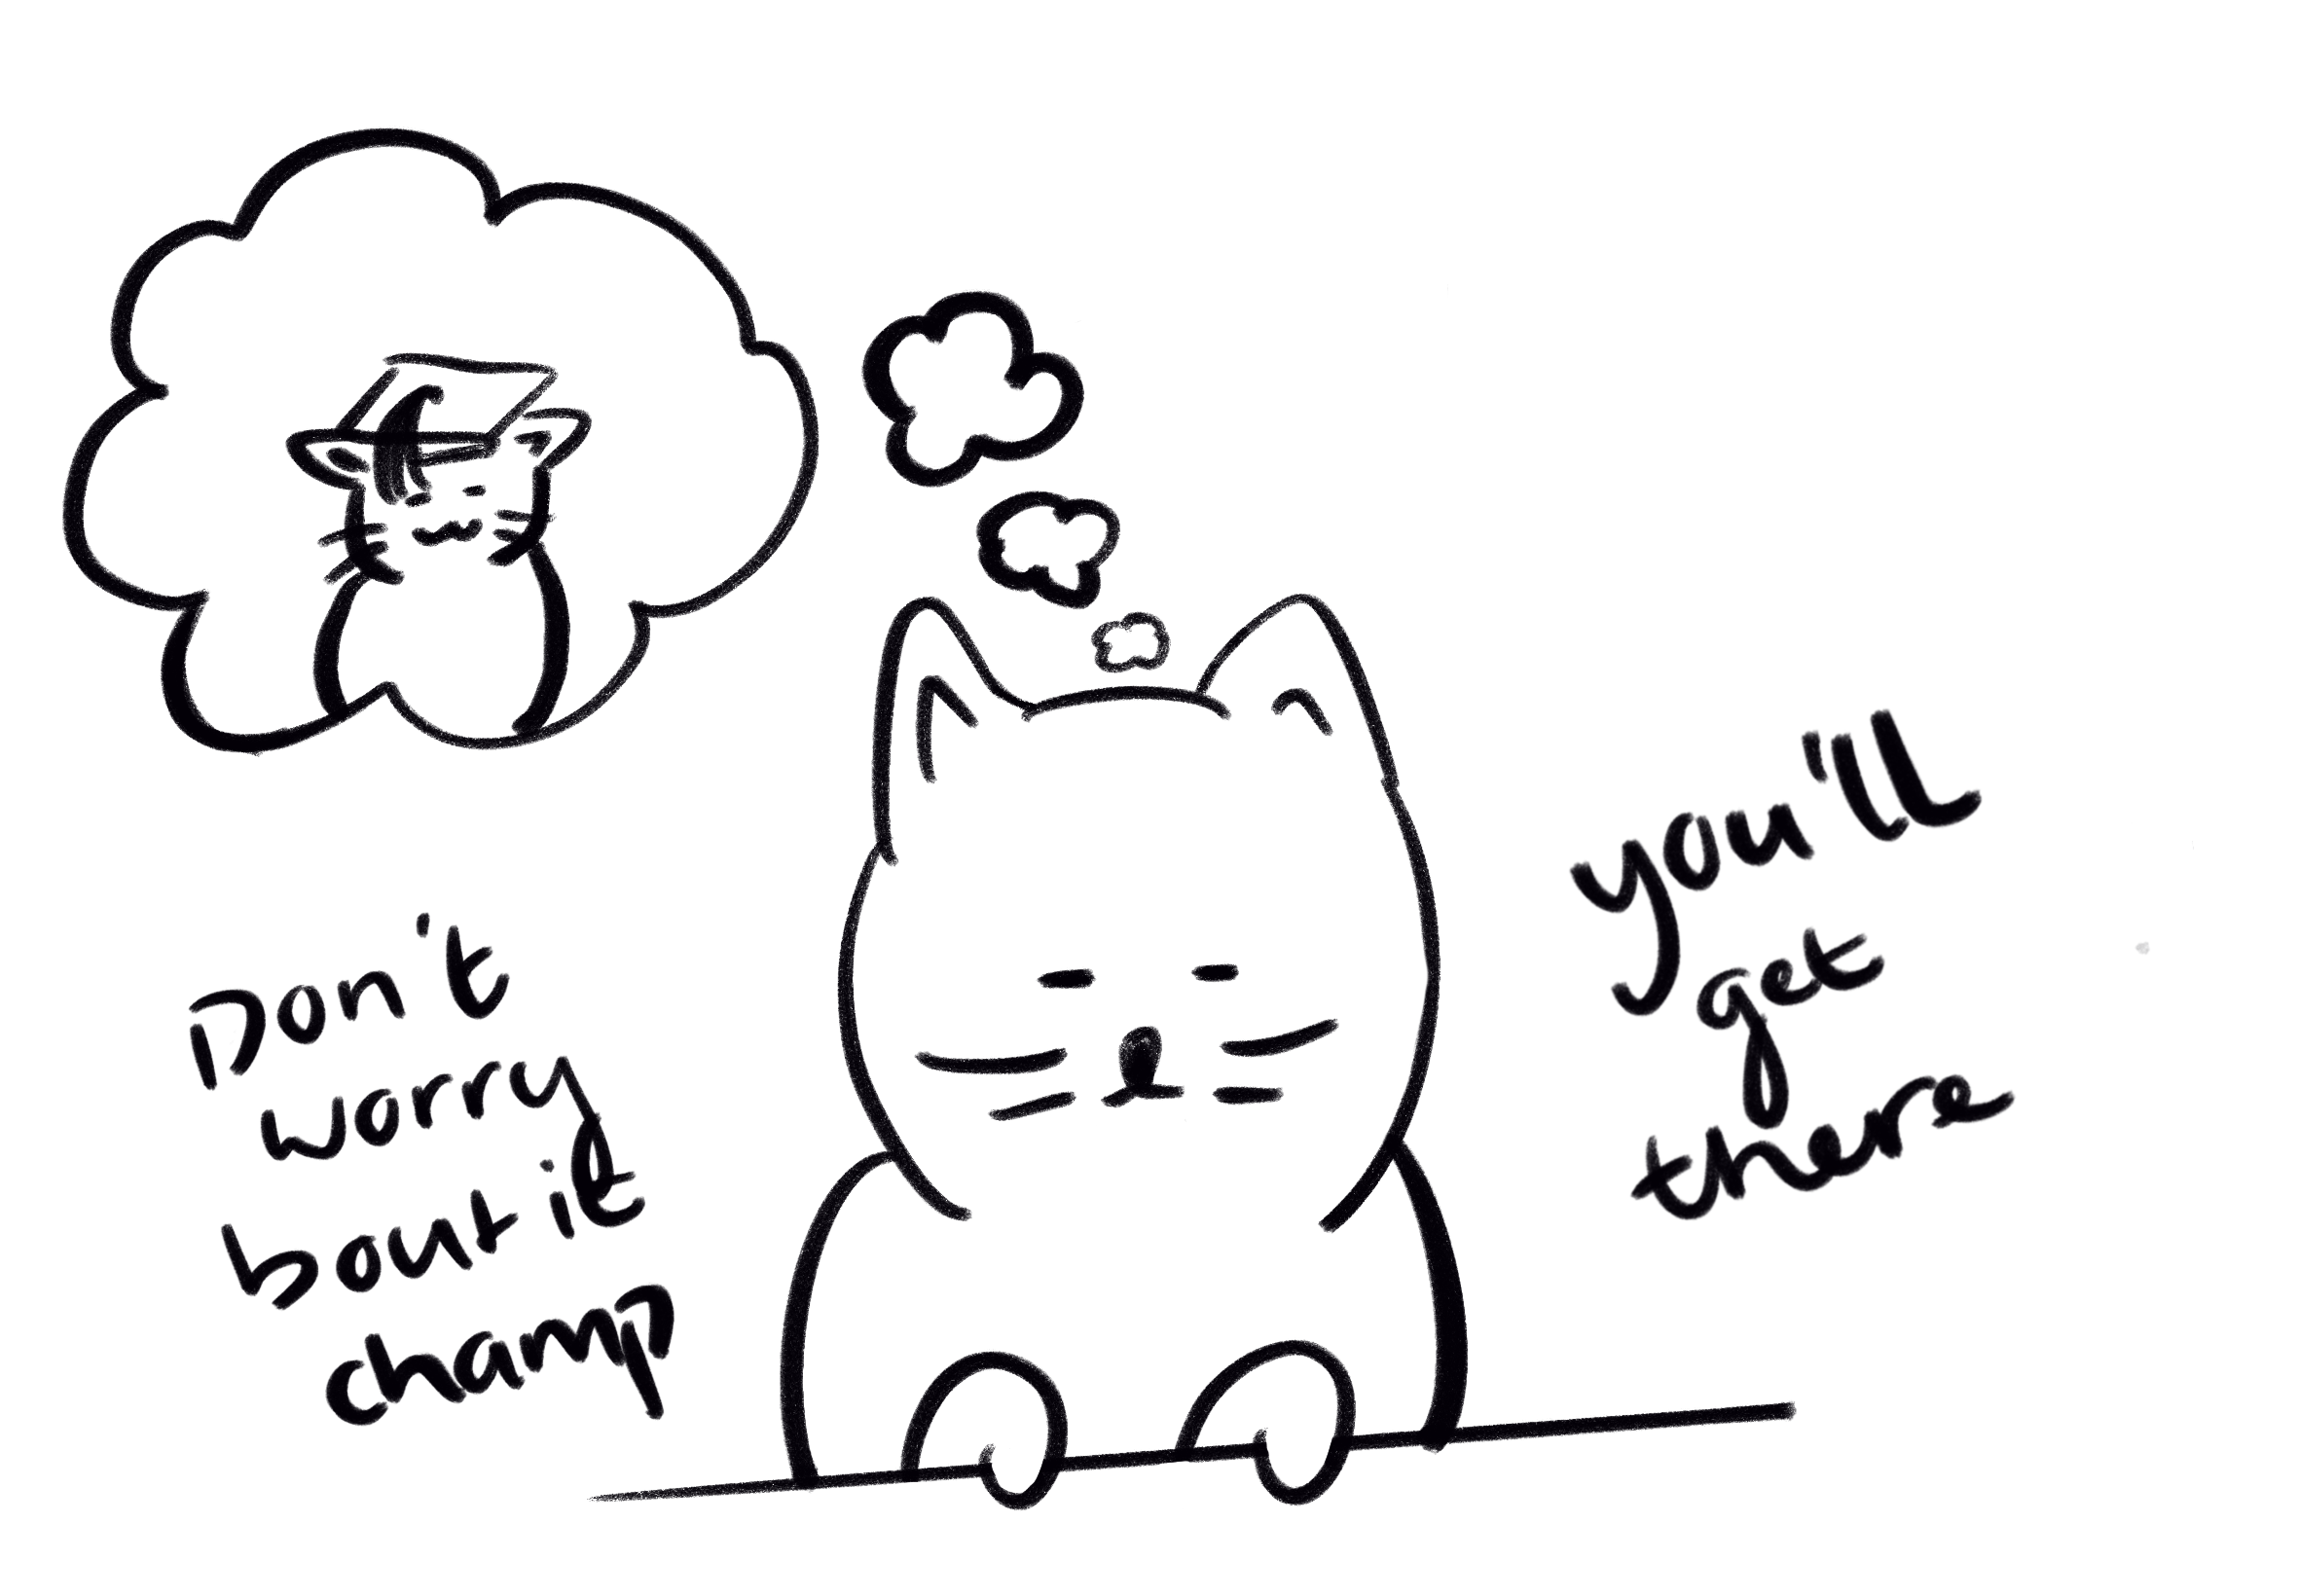 Don't
worry
bout it
champ
you'll
get
there